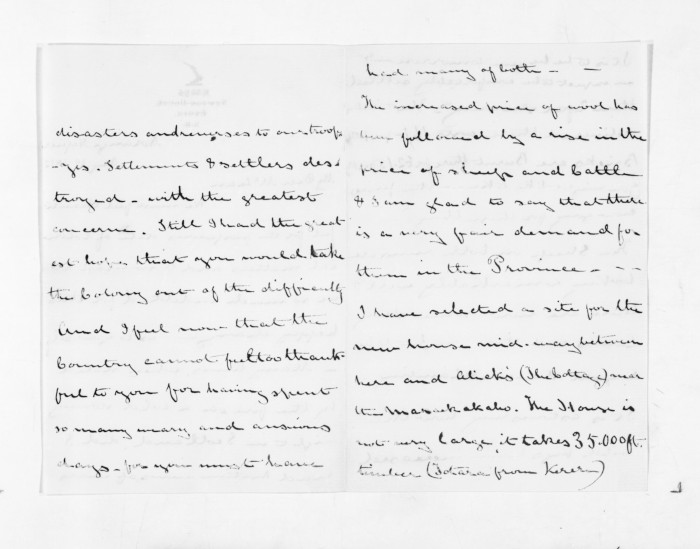 disasters and reverses to our troops
- yes. Settlements & settlers des-
troyed - with the greatest
concern. Still I had the great
est hopes that you would take
the Colony out of the difficulty
And I feel now that the
Country cannot feel too thank-
ful to you for having spent
so many weary and anxious
days - for you must have
had many of both -
The increased price of wool has
been followed by a rise in the
price of sheep and Cattle
& I am glad to say that there
is a very fair demand for
them in the Province -
I have selected a site for the
new house mid-way between
here and Alick's (The Cottage) near
the Maraekakaho. The House is
not very large, it takes 35.000 ft.
timber (Totara from Kereru)